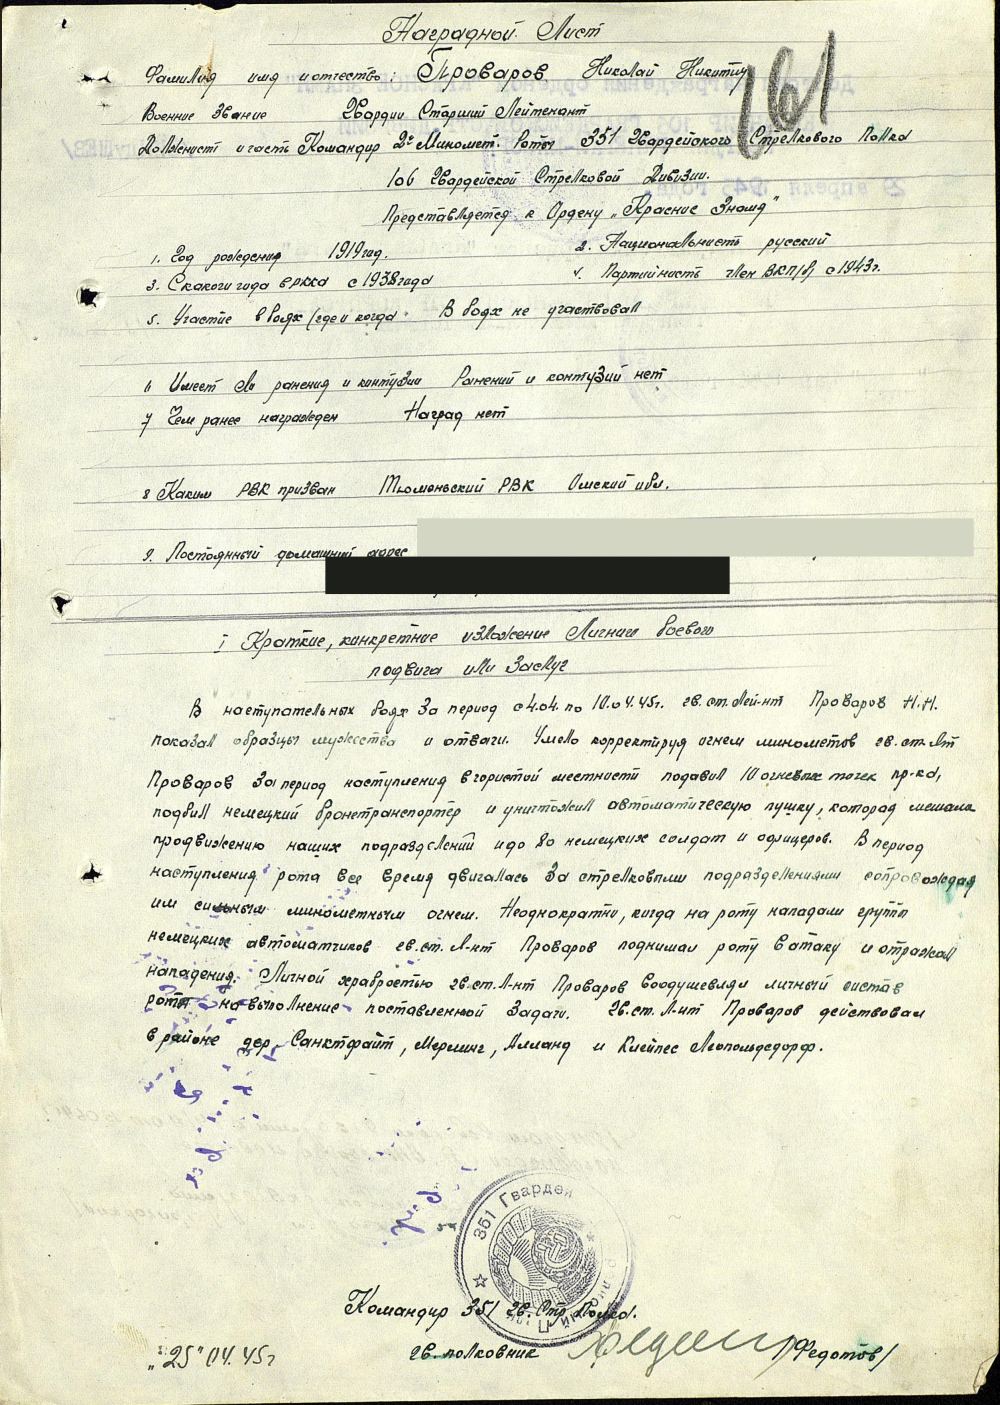 Наградной Лист
161
Фамилия имя и отчество: Проваров Николай Никитич
Военние Звание Гвардии Старший Лейтенант
Должнист и часть Командир 2й Миномет. Роты 351 Гвардейского Стрелкового Полка
106 Гвардейской Стрелковой Дивизии.
Представляется к Ордену „Красние Знамя"
1. Год рождения 1919 год.
2. Национальнисть русский
3. С какого года в РККА с 1938 года
4. Партийнисть член ВКП/б/ с 1943 г.
5. Участие в боях /где и когда В боях не участвовал
6 Имеет ли ранения и контузии Ранений и контузий нет
7 Чем ранее награжден Наград нет
8 Каким РВК призван Тюменьский РВК Омский обл.
9. Постоянный домашний адрес
I Краткие, конкретние изложение Личниго боевого
подвига или Заслуг
В наступательных боях За период с 4.04. по 10.04.45г. гв. ст. лей-нт Проваров Н.Н.
показал образцы мужества и отваги. Умело корректируя огнем минометов гв. ст. л-т
Проваров За период наступления в гористой местнисти подавил 10 огневых точек пр-ка,
подбил немецкий бронетранспортер и уничтожил автоматическую пушку, которая мешала
продвижению наших подразделений и до 80 немецких солдат и офицеров. В период
наступления рота все время двигалась За стрелковыми подразделениями сопровождая
им сильным минометным огнем. Неоднократни, когда на роту нападали группы
немецких автоматчиков гв. ст. л-нт Проваров поднимал роту в атаку и отражал
нападения. Личной храбростью гв. ст. л-нт Проваров воодушевлял личный состав
роты на выполнение поставленной Задачи. Гв. ст. л-нт Проваров действовал
в районе дер. Санктфайт, Мерлинг, Алланд и Клейпес Леопольдсдорф.
351 Гвардей
Командир 351 гв. Стр. Полка.
гв. полковник /Федотов/
„25" 04. 45 г